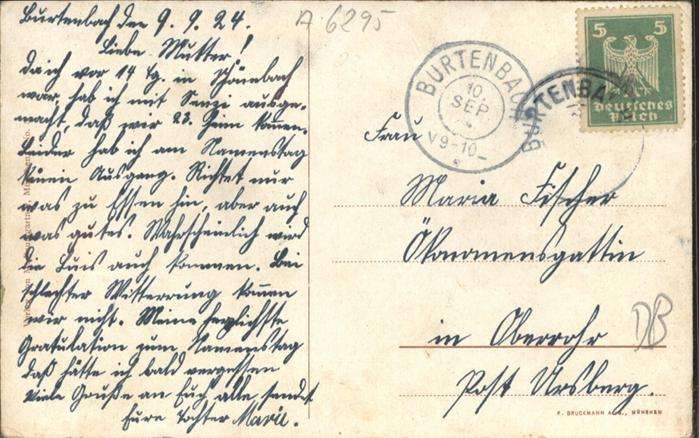 Burtenbach den 9.9.24.
A 6295
Liebe Mutter!
Da ich vor 14 Tg. in Schönebach
war, hab ich mit Senzi ausge-
macht, daß wir 23. heim können.
Leider hab ich am Namenstag
keinen Ausgang. Richtet nur
was zu Essen hin, aber auch
was gutes. Wahrscheinlich wird
die Luis auch kommen. Bei
schlechter Witterung können
wir nicht. Meine herzlichste
Gratulation zum Namenstag
daß hätte ich bald vergessen
Viele Grüße an Euch alle sendet
Eure Tochter Marie.
BURTENBACH
10.
SEP
V9-10
BURTENBACH
5 5
Deutsches
Reich
Frau
Maria Fischer
Ökonomensgattin
in Oberrohr
Post Ursberg.
DB
F. BRUCKMANN A.-G., MÜNCHEN